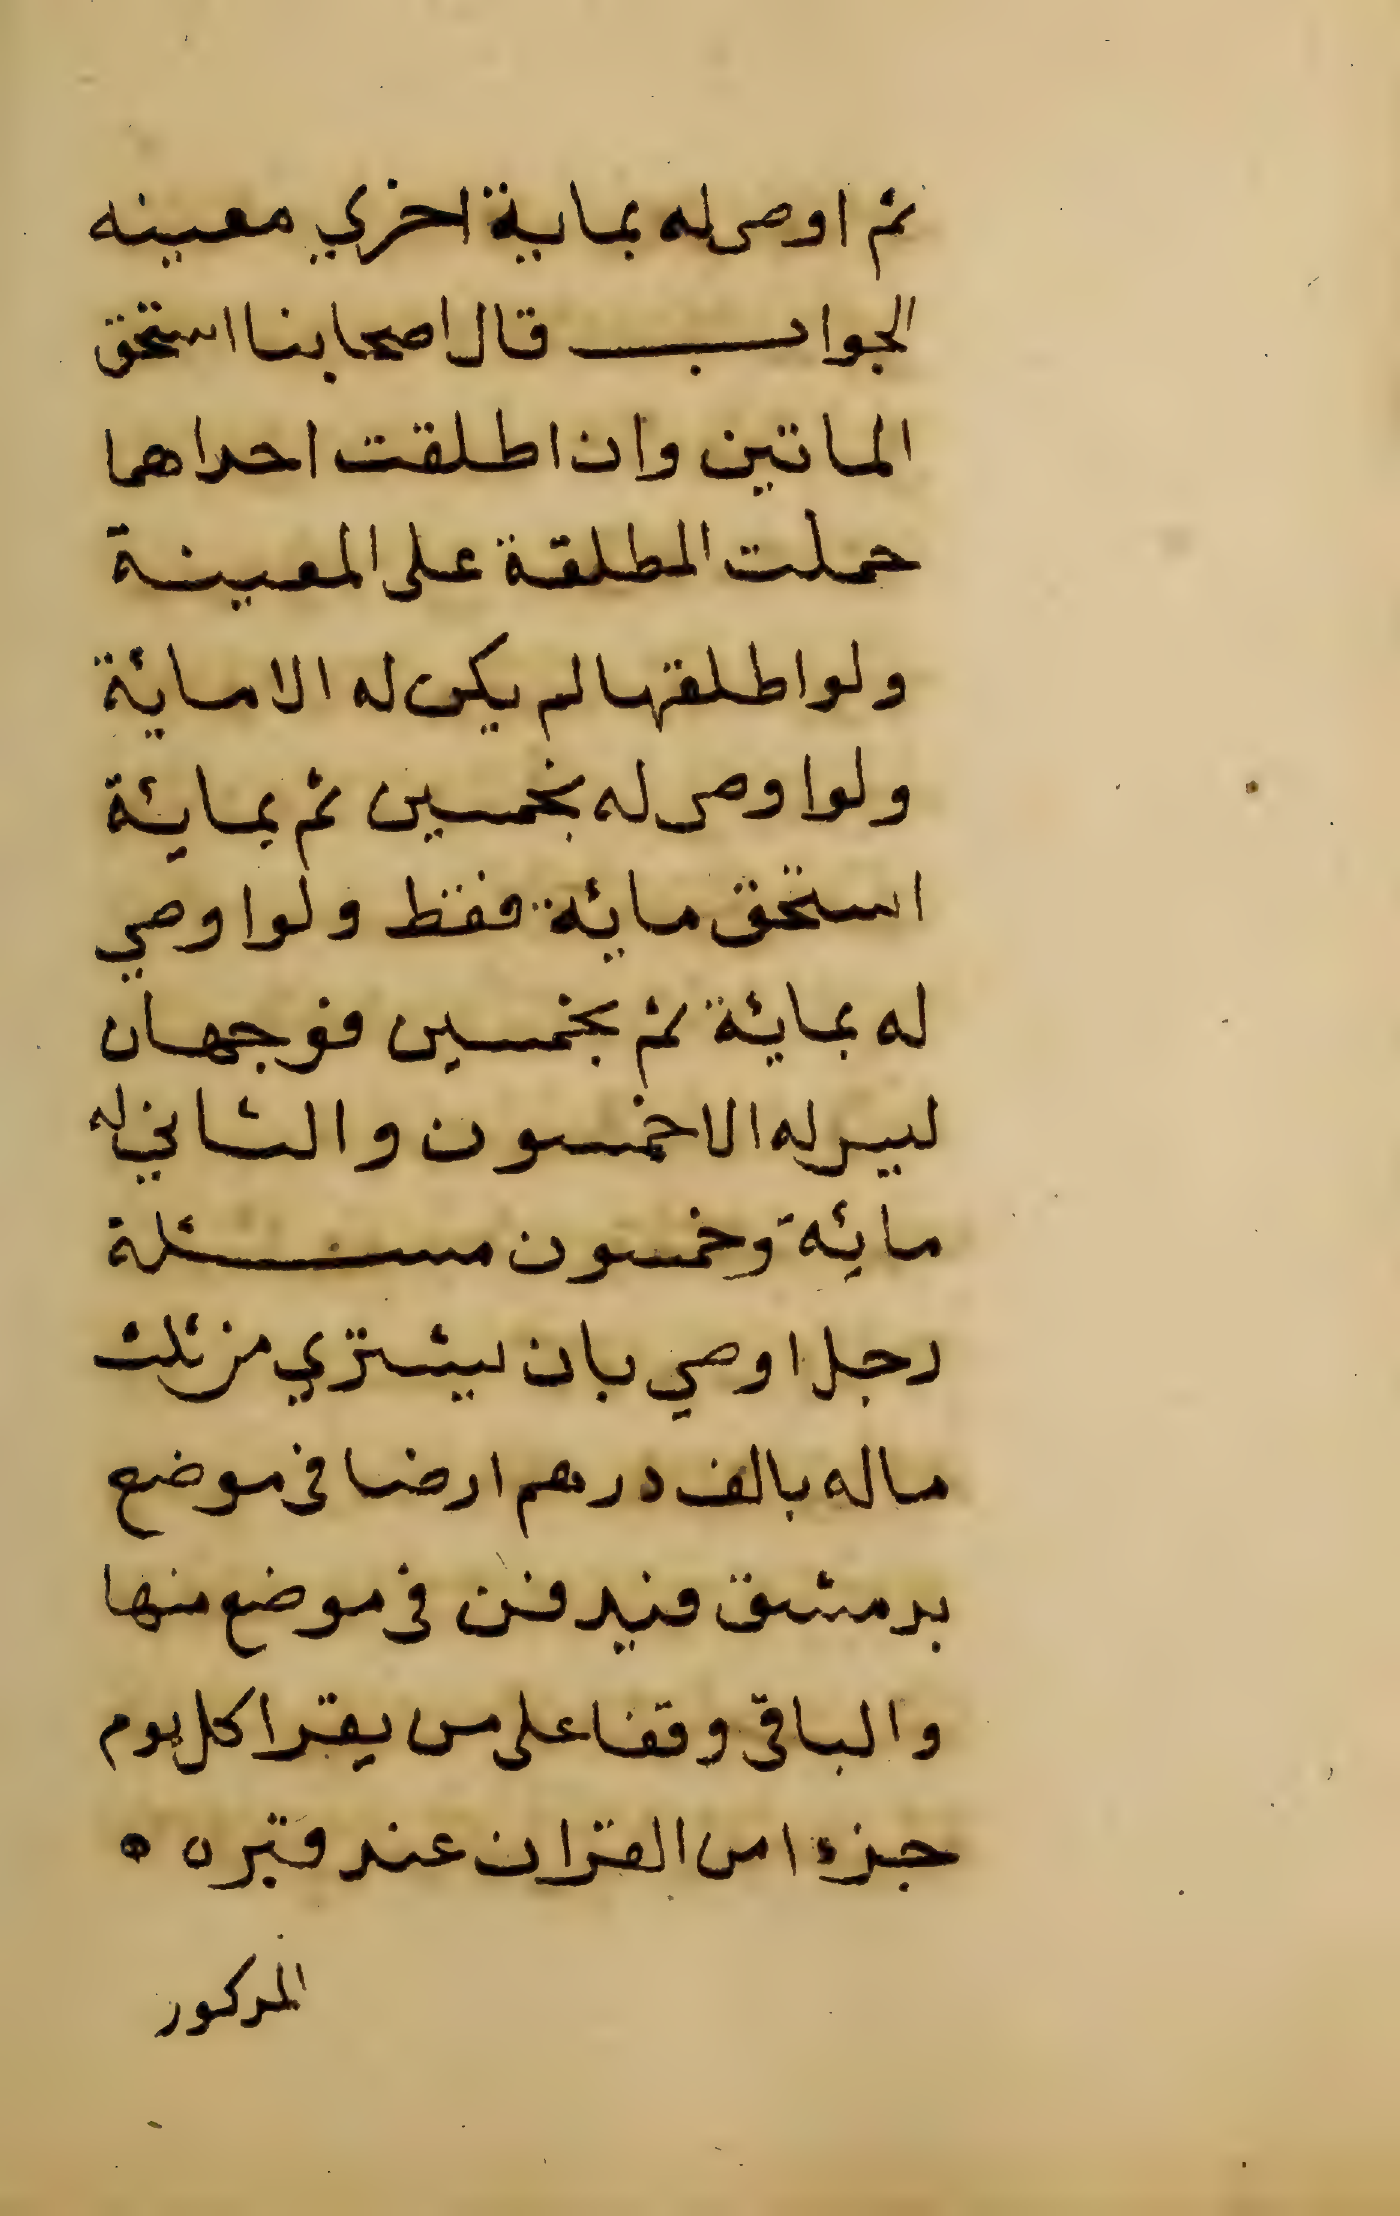 ثم اوصى له بماية اخري معينه
الجواب قال اصحابنا استحق
الماتين وان اطلقت احداهما
حملت المطلقة على المعينة
ولو اطلقها لم يكن له الا مايئة
ولو اوصى له بخمسين ثم بمايئة
استحق مايئة فقط ولو اوصي
له بمايئة ثم بخمسين فوجهان
ليس له الا خمسون والثاني له
مايئة وخمسون مسئلة
رجل اوصي بان يشتري من ثلث
ماله بالف درهم ارضا في موضع
بدمشق فيدفن في موضع منها
والباقي وقفا على من يقرا كل يوم
جزءا من القران عند قبره
المذكور